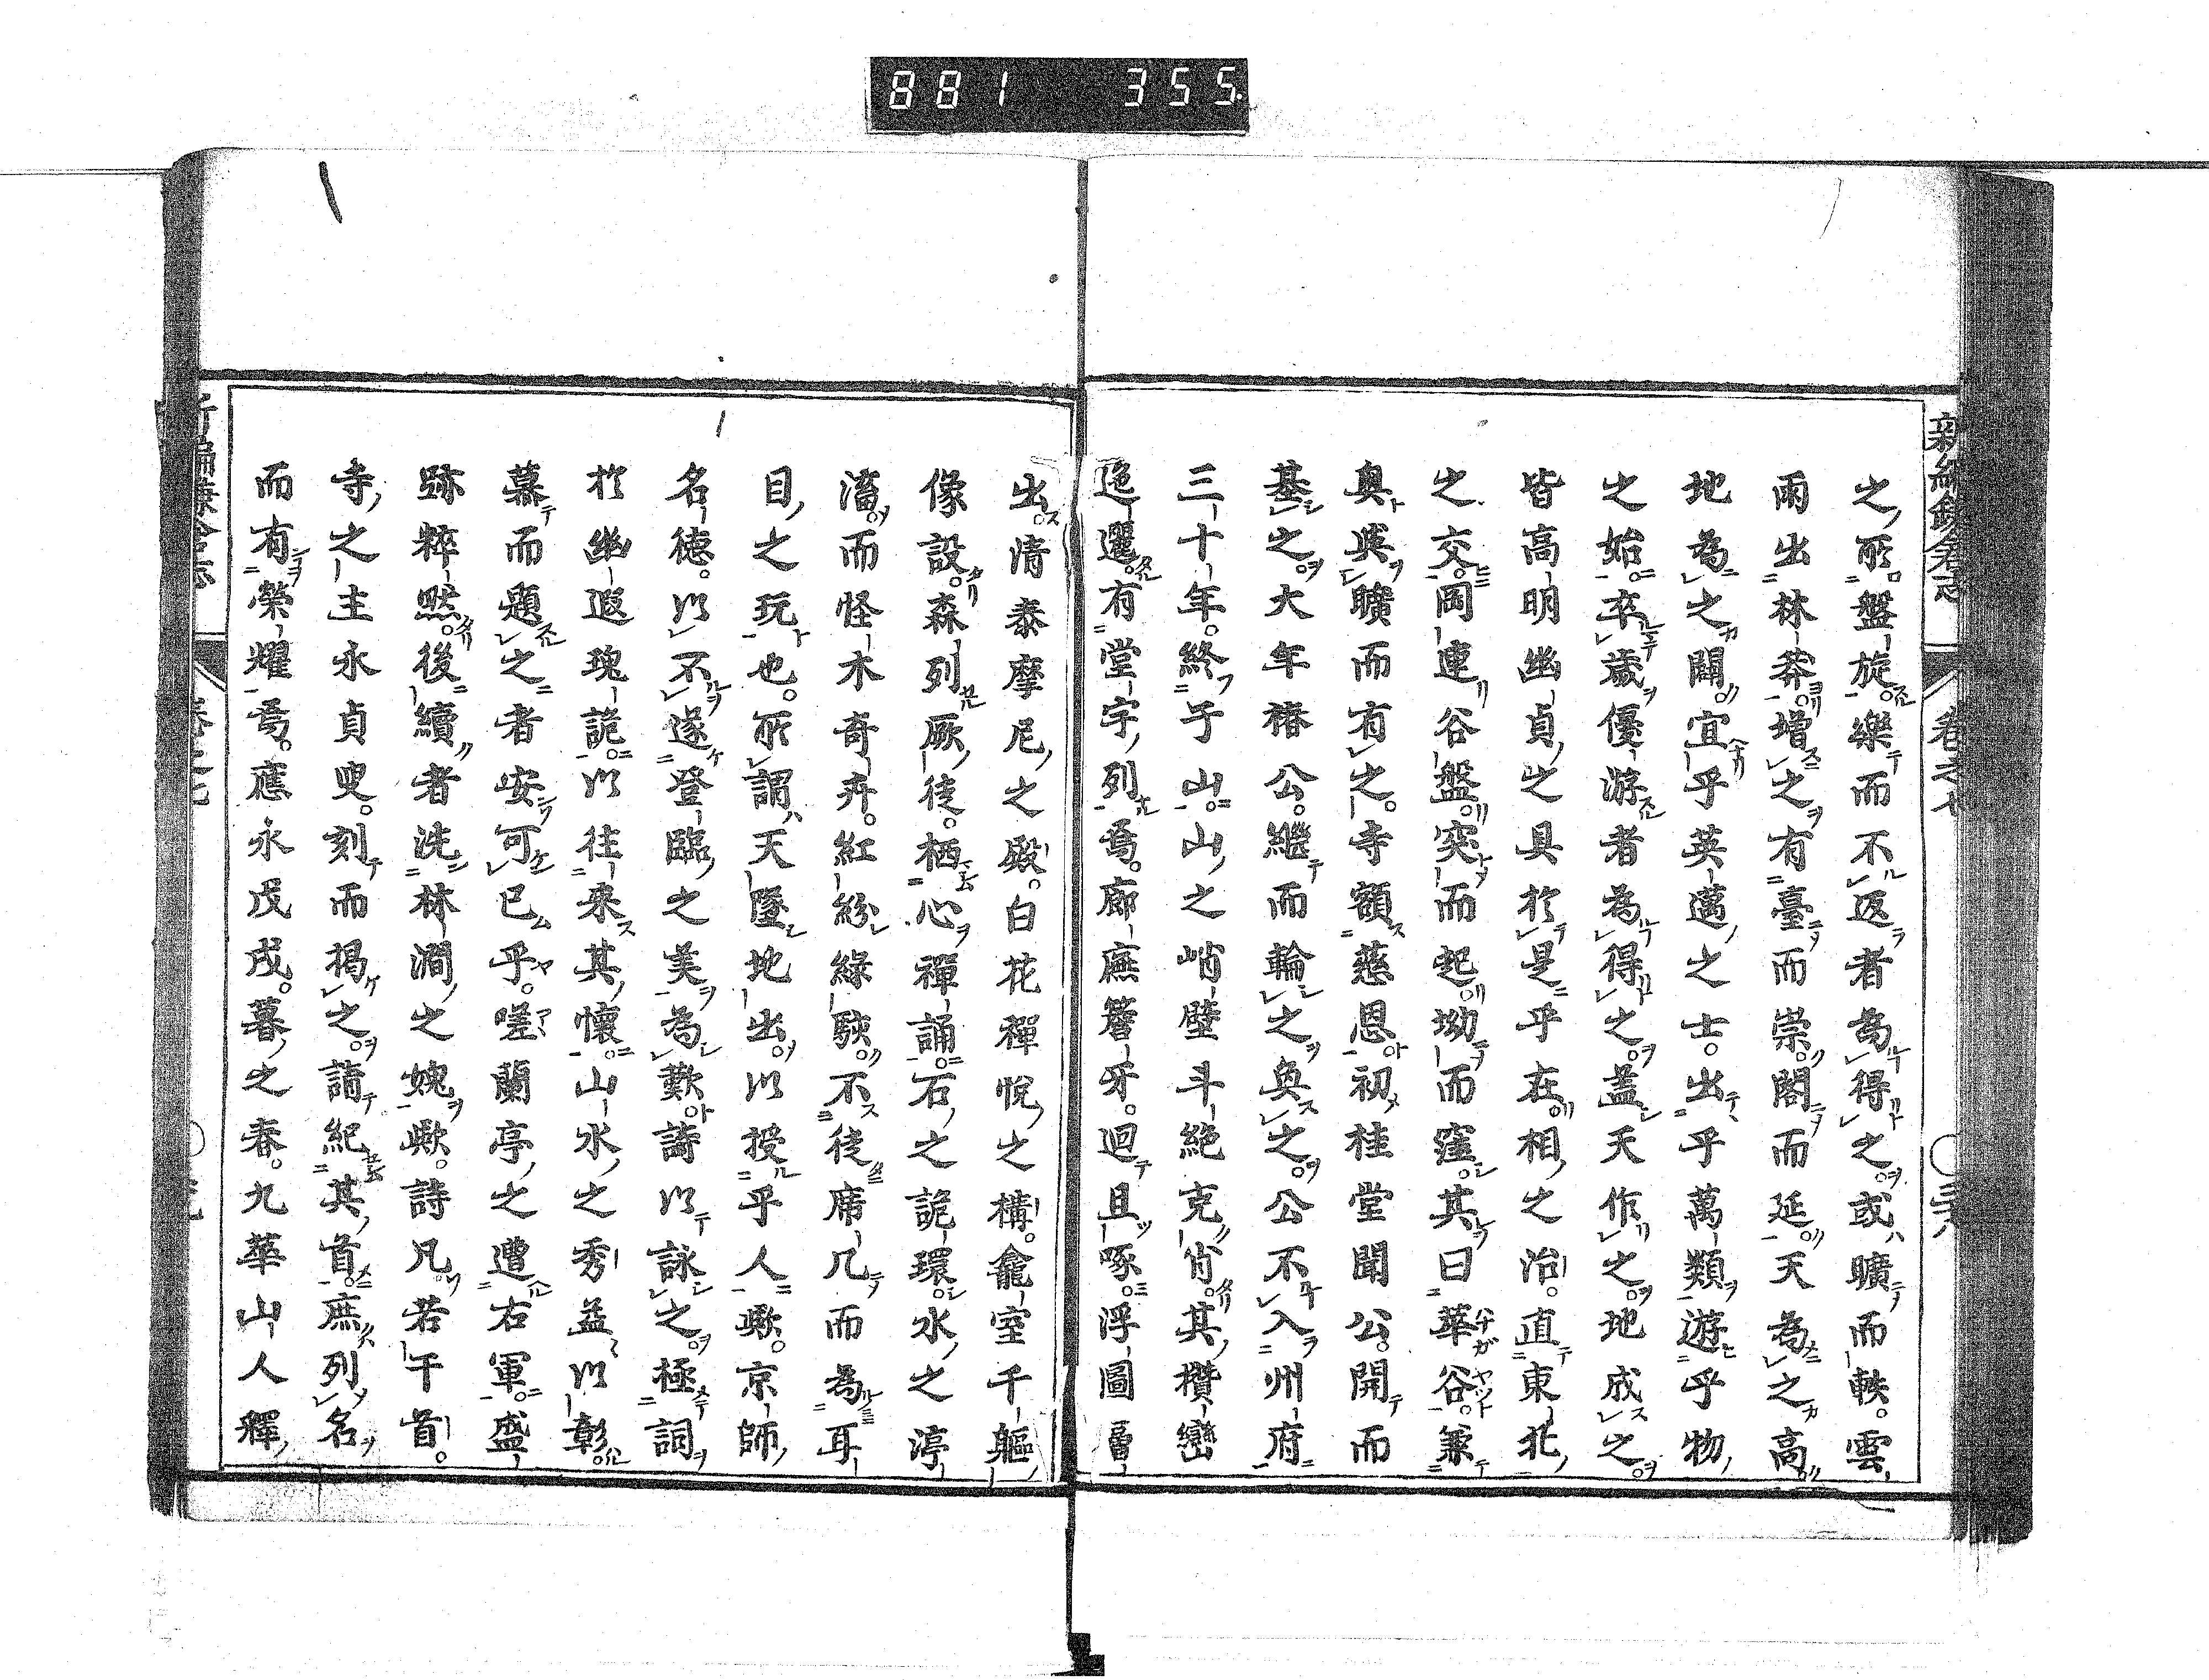 881 355
新編鎌倉志 卷之七 〇三十八
之所盤旋樂而不返者為得之或曠而軼雲
雨出林莽增之有臺而崇閣而延天為之高
地為之闢宜乎英邁之士出乎萬類游乎物
之始卒歲優游者為得之蓋天作之地成之
皆高明幽貞之具於是乎在相之治直東北
之交岡連谷盤突而起坳而窪其曰華谷兼
奧與曠而有之寺額慈恩初桂堂聞公開而
基之大年椿公繼而輪之奐之公不入州府
三十年終于山山之峭壁斗絕克肖其攢巒
迤邐有堂宇列焉廊廡簷牙迴且啄浮圖層
出清泰摩尼之殿白花禪悅之構龕室千軀
像設森列厥徒栖心禪誦石之詭環水之渟
滀而怪木奇卉紅紛綠駮不徒席几而為耳
目之玩也所謂天墜地出以授乎人歟京師
名德以不遂登臨之美為歎詩以詠之極詞
於幽遐瑰詭以往來其懷山水之秀益以彰
慕而題之者安可已乎嗟蘭亭之遭右軍盛
跡粹㸃後續者洗林澗之媿歟詩凡若干首
寺之主永貞叟刻而揭之請紀其首庶列名
而有榮耀焉應永戊戌暮之春九華山人釋